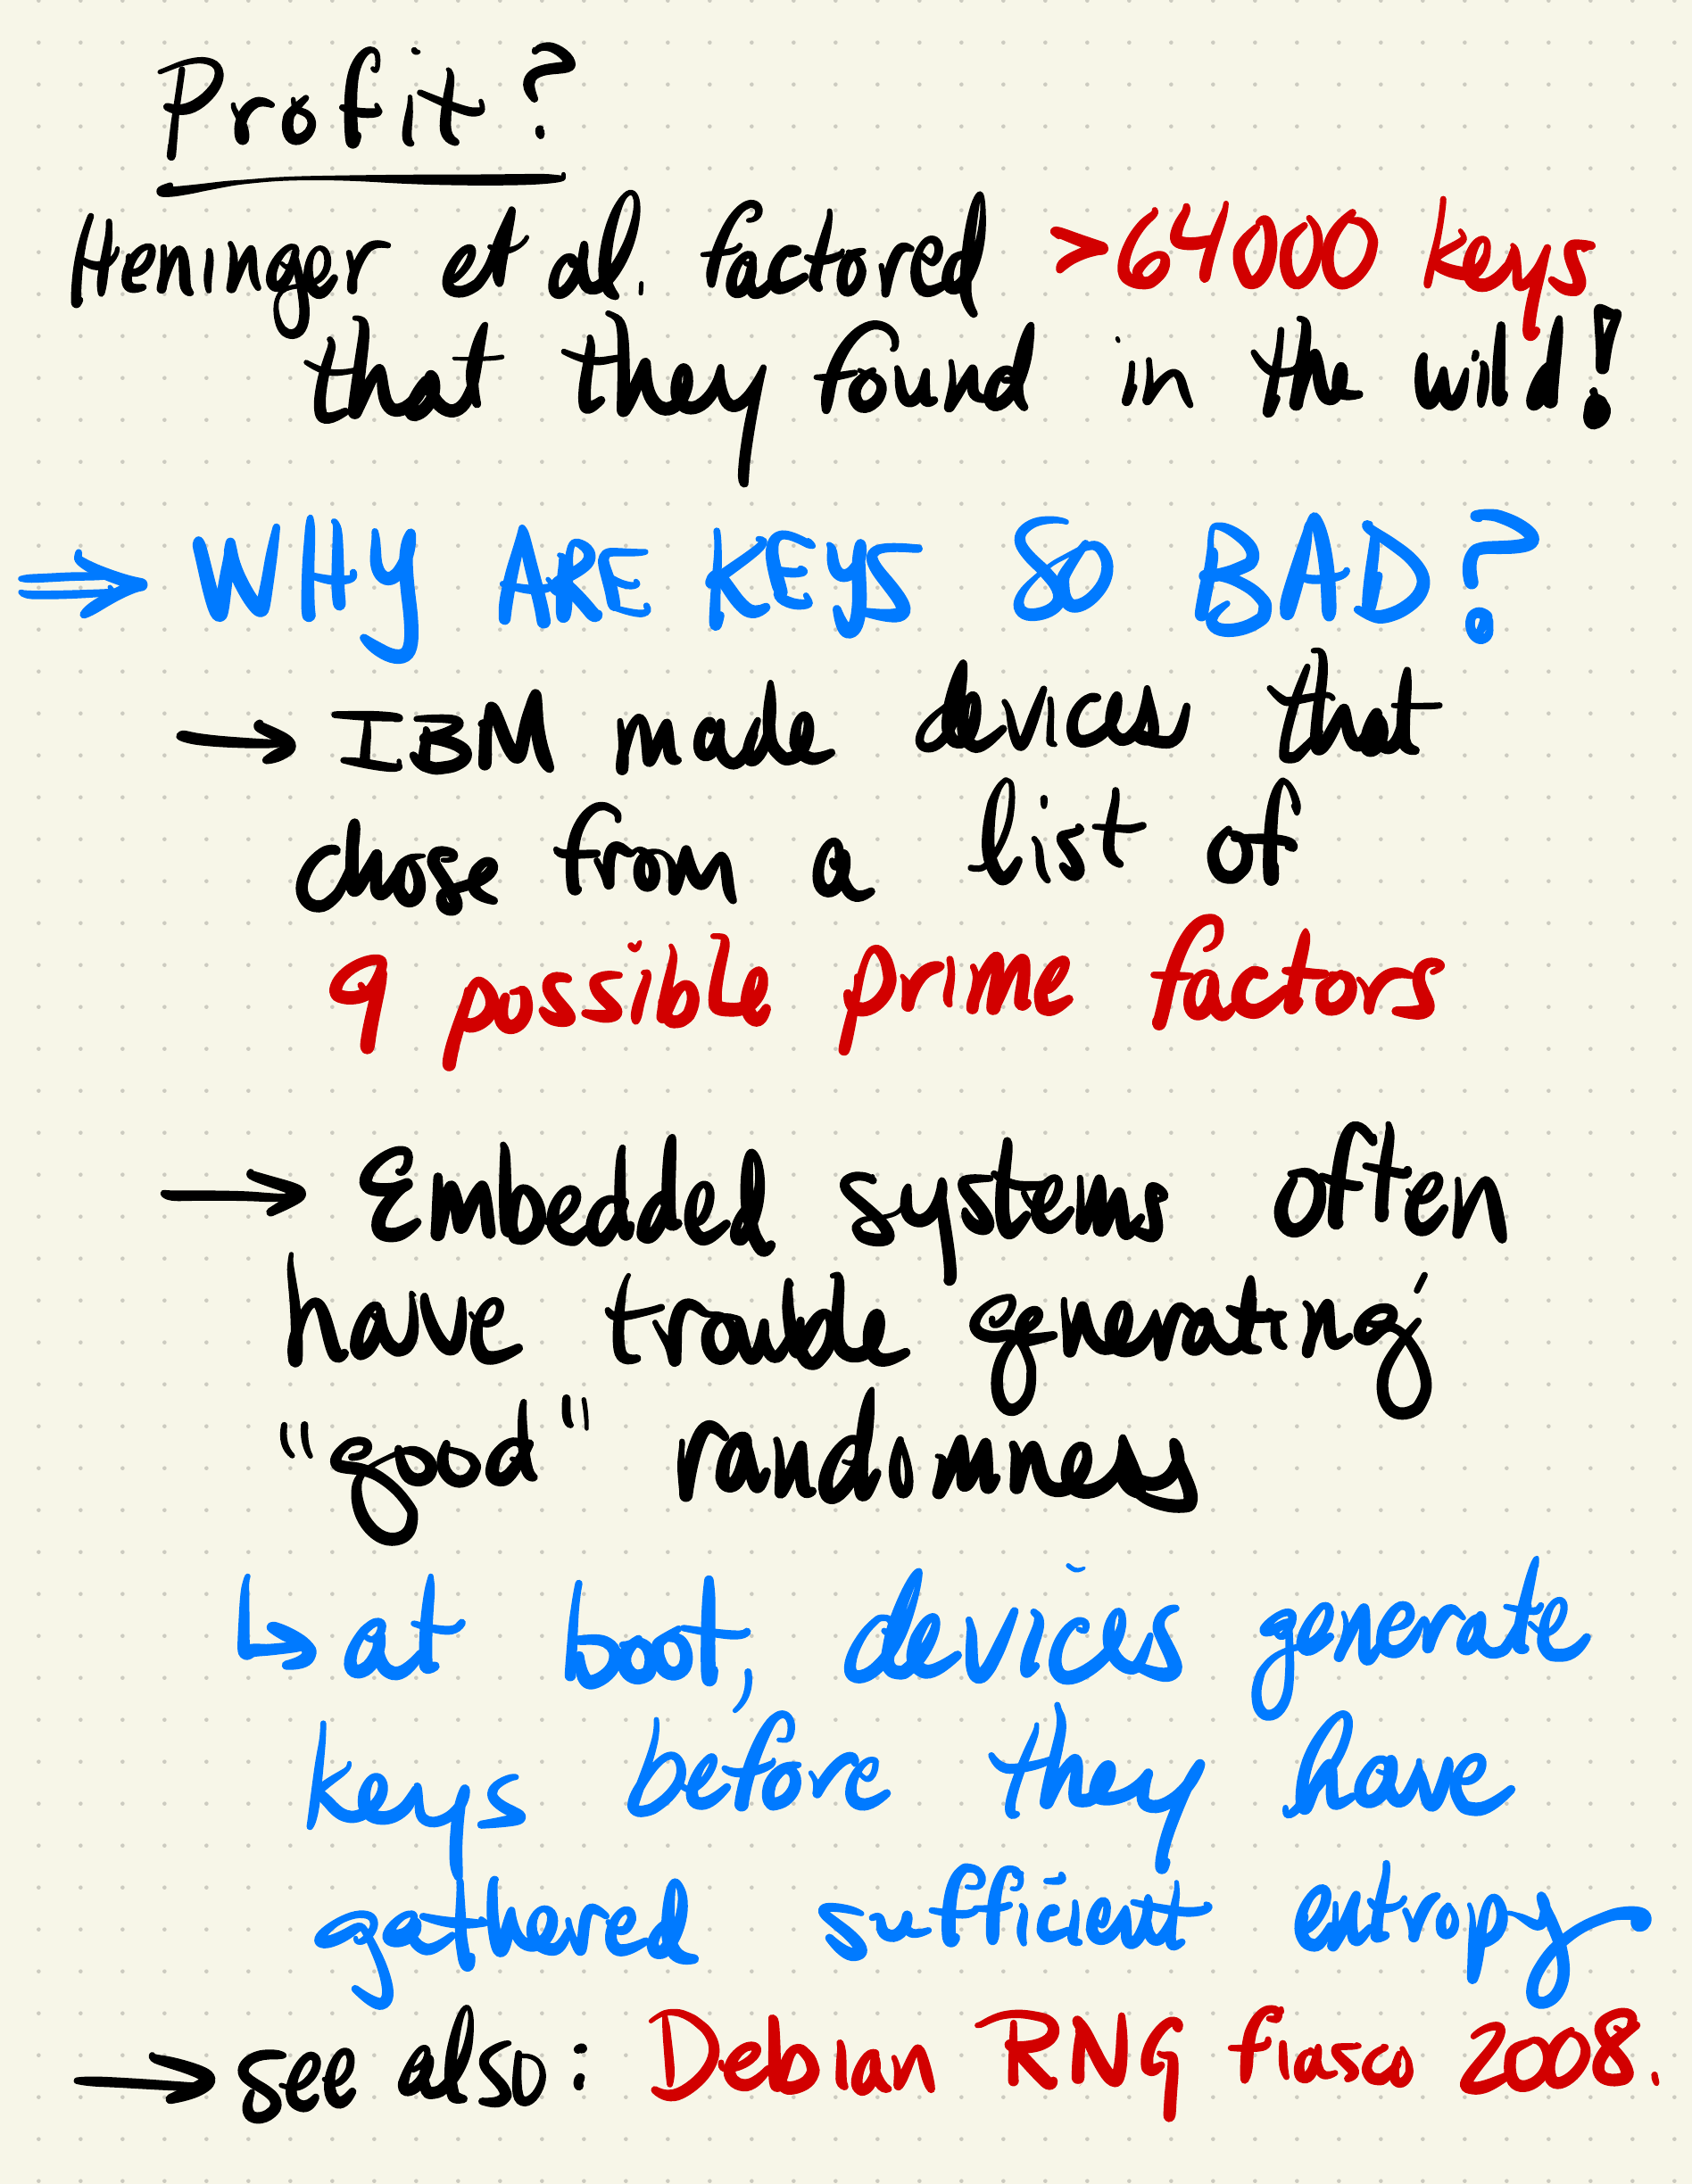 Profit?
Heninger et al. factored >64000 keys
that they found in the wild!
⇒ WHY ARE KEYS SO BAD?
→ IBM made devices that
chose from a list of
9 possible prime factors
→ Embedded systems often
have trouble generating
"good" randomness
↳ at boot, devices generate
keys before they have
gathered sufficient entropy
→ see also: Debian RNG fiasco 2008.